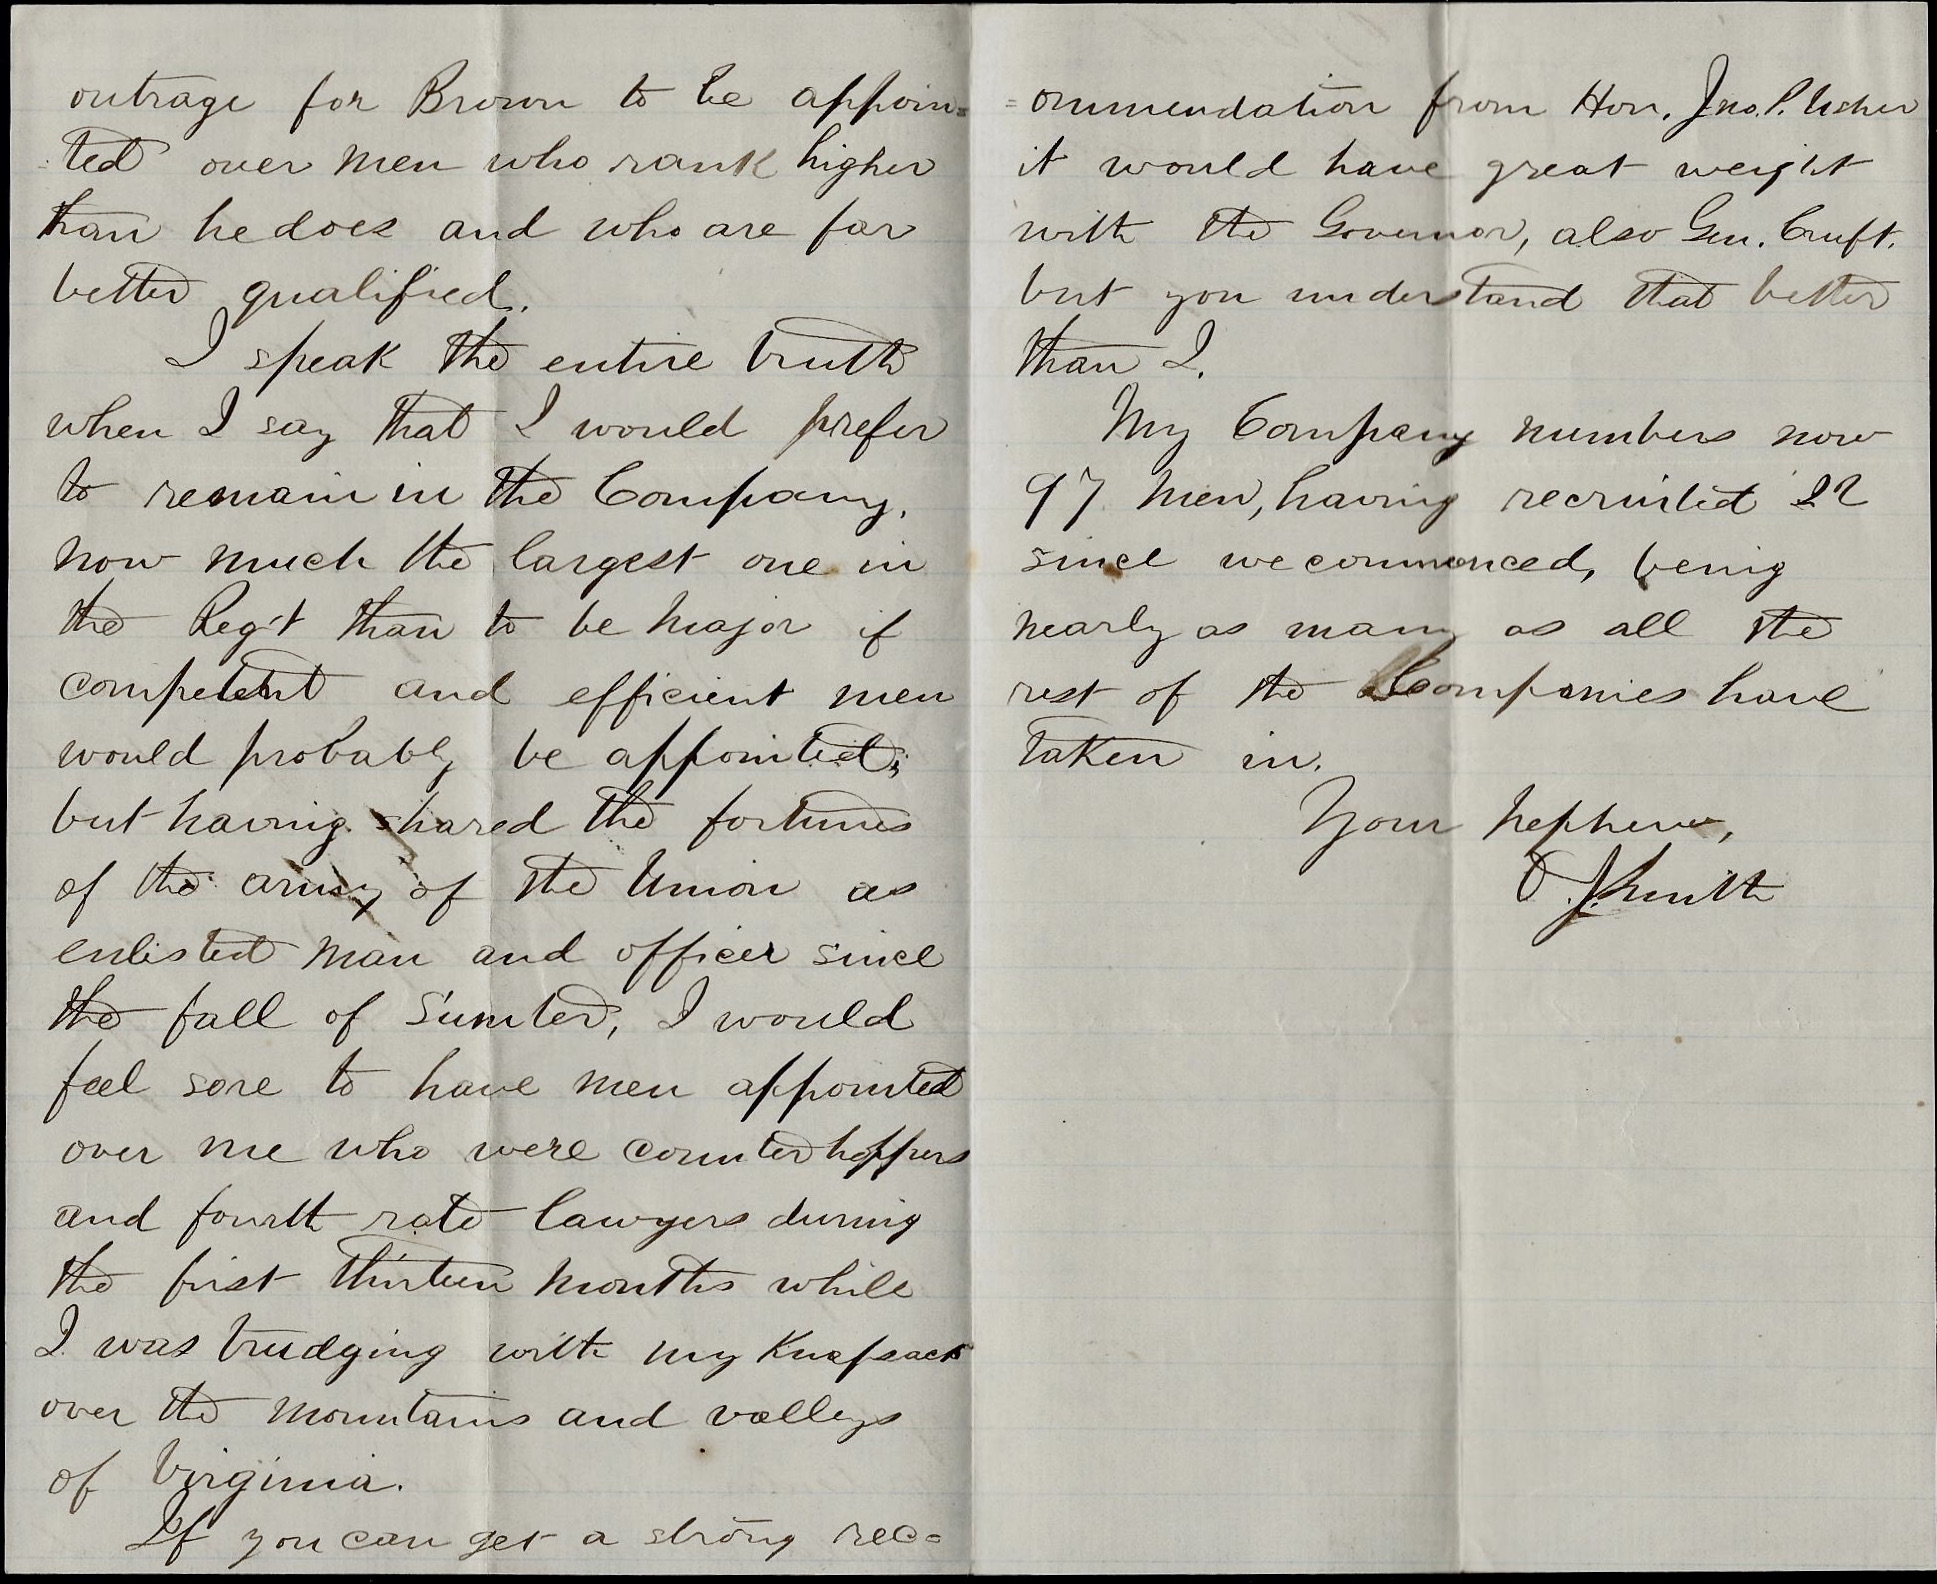 outrage for Brown to be appoin=
=ted over men who rank higher
than he does and who are far
better qualified.
I speak the entire truth
when I say that I would prefer
to remain in the Company,
now much the largest one in
the Reg't than to be Major if
competent and efficient men
would probably be appointed;
but having shared the fortunes
of the army of the Union as
enlisted man and officer since
the fall of Sumter, I would
feel sore to have men appointed
over me who were counter hoppers
and fourth rate lawyers during
the first thirteen months while
I was trudging with my Knapsack
over the mountains and valleys
of Virginia.
If you can get a strong rec=
=ommendation from Hon. Jno. P. Usher
it would have great weight
with the Governor, also Gen. Cruft.
but you understand that better
than I.
My Company numbers now
97 men, having recruited 22
since we commenced, being
nearly as many as all the
rest of the Companies have
taken in.
Your Nephew,
O. J. Smith